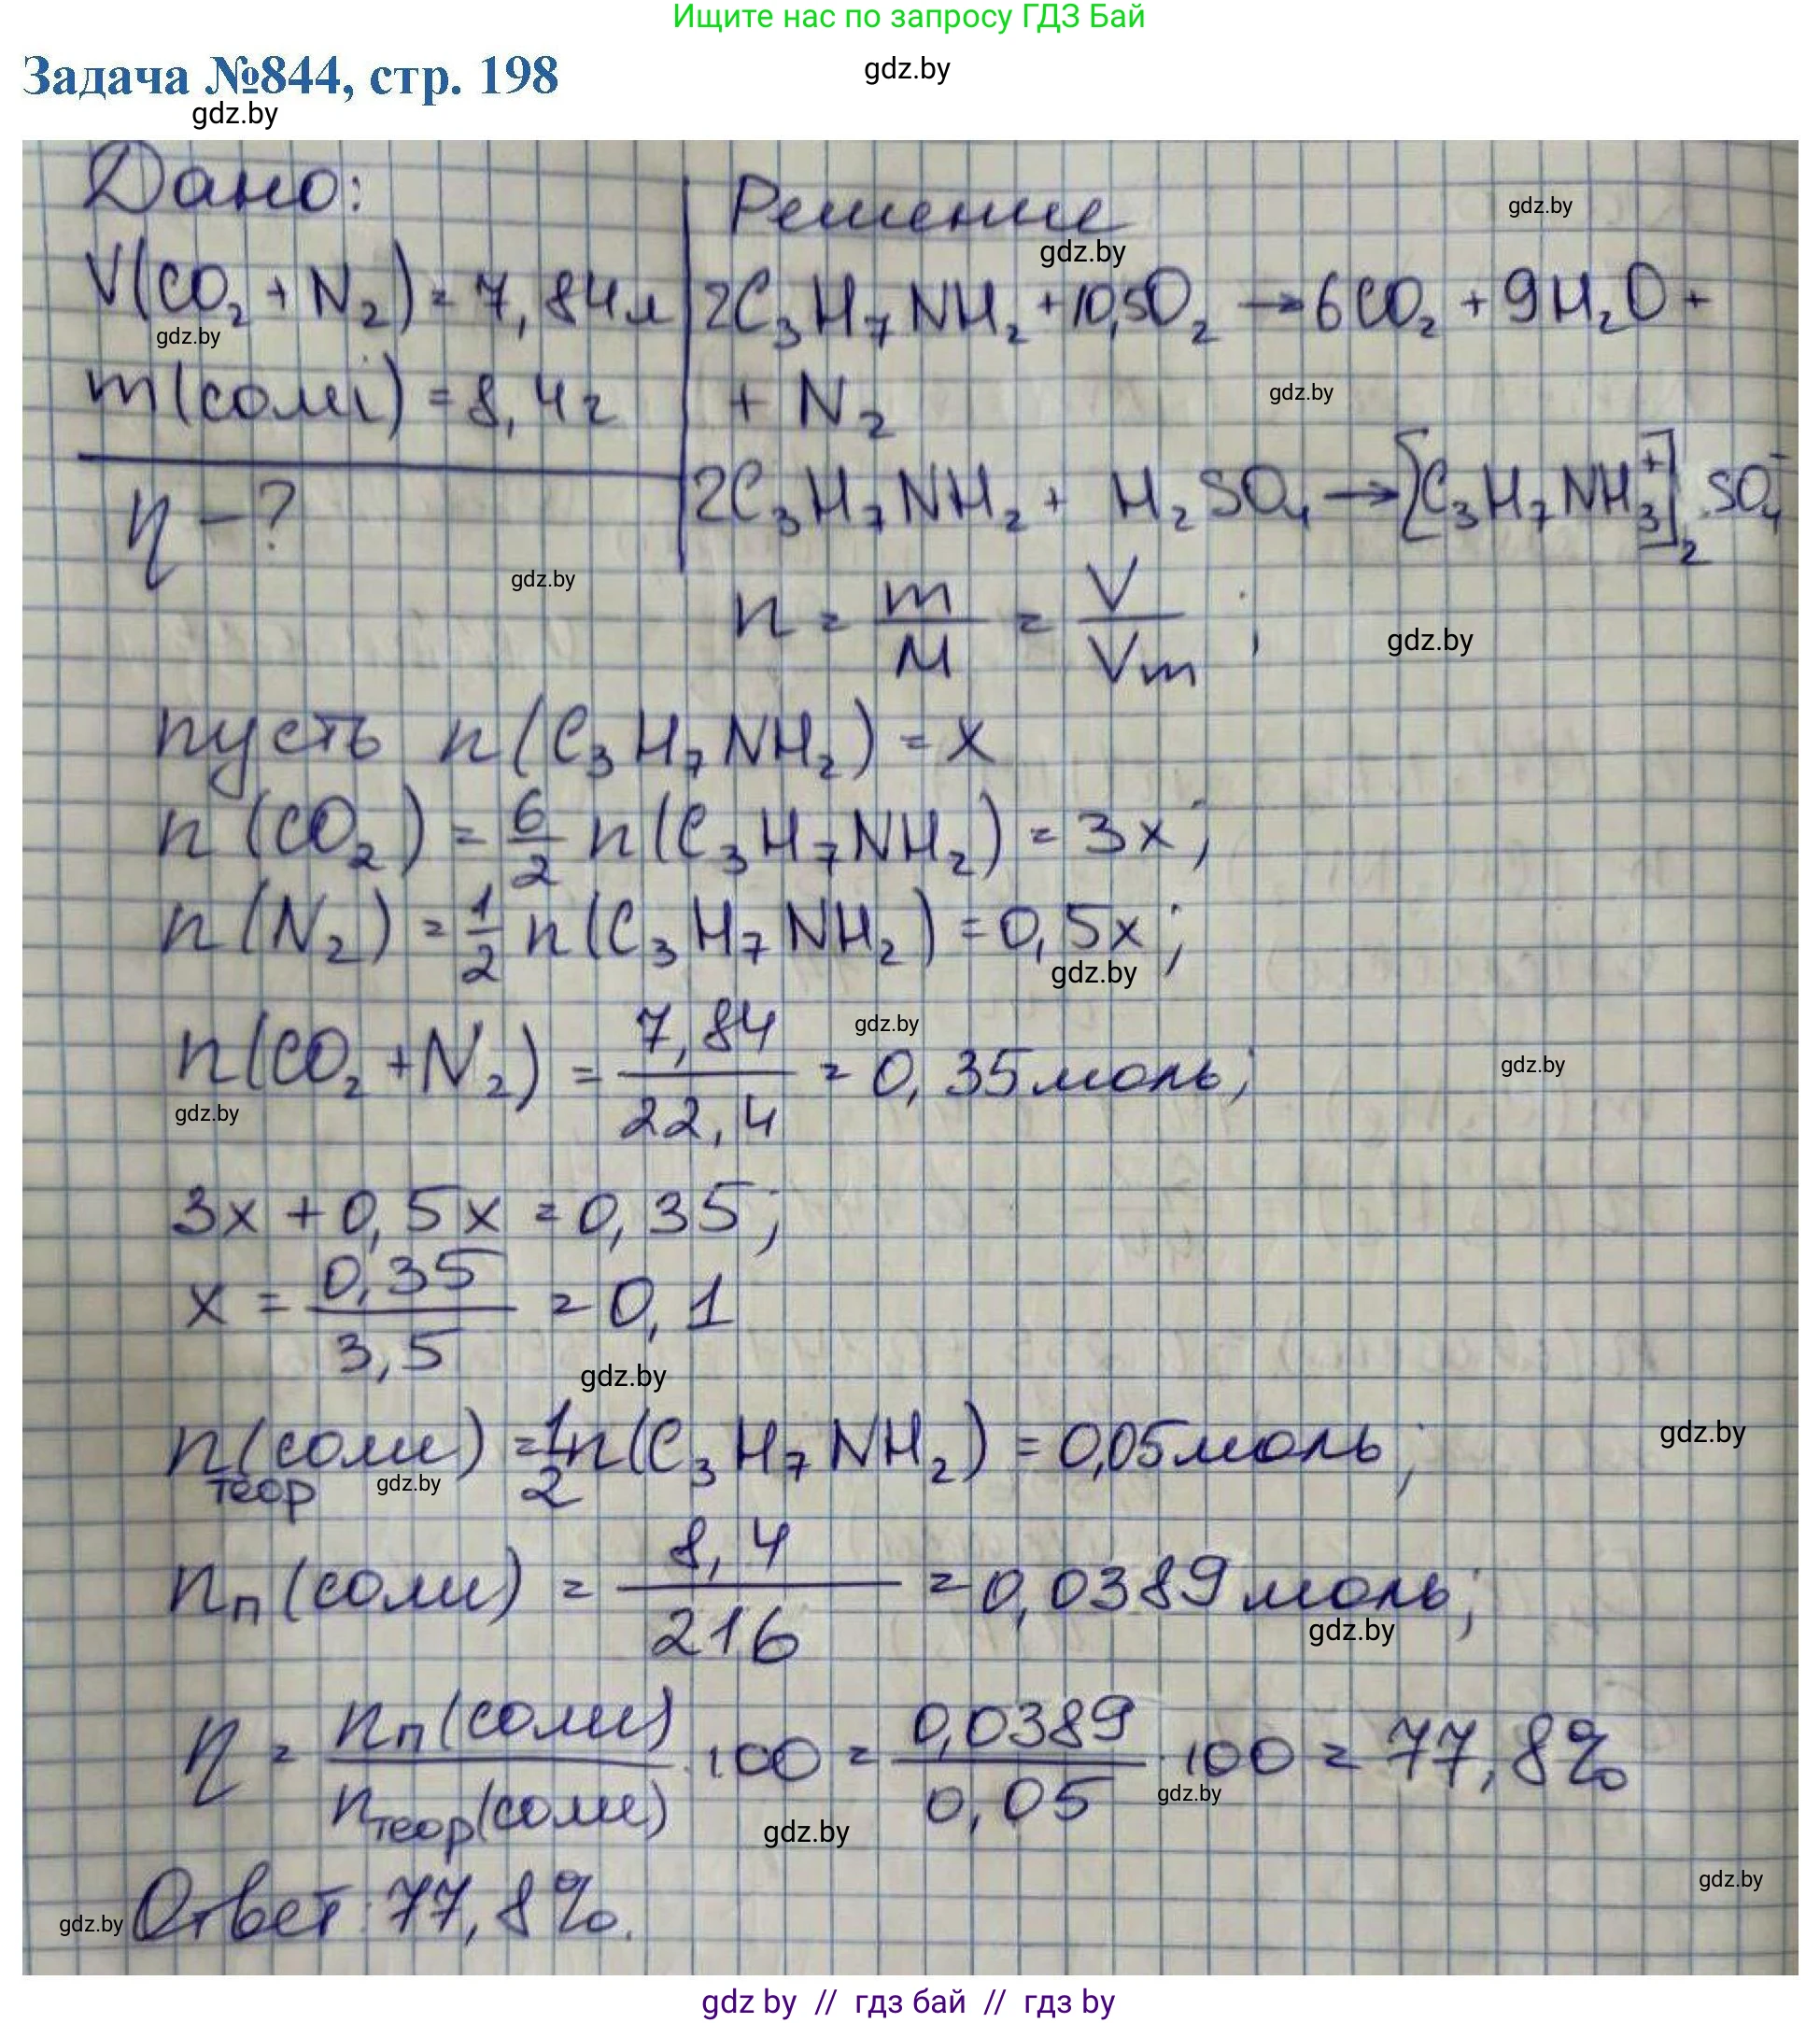 Ищите нас по запросу ГДЗ Бай
Задача №844, стр. 198
gdz.by
gdz.by
Дано:
Решение
gdz.by
gdz.by
V(CO₂ + N₂) = 7,84л
2C₃H₇NH₂ + 10,5O₂ → 6CO₂ + 9H₂O +
gdz.by
m(соли) = 8,4г
+ N₂
gdz.by
η - ?
2C₃H₇NH₂ + H₂SO₄ → [C₃H₇NH₃⁺]₂SO₄⁻
gdz.by
n = m/M = V/Vm ;
gdz.by
пусть n(C₃H₇NH₂) = x
n(CO₂) = 6/2 n(C₃H₇NH₂) = 3x;
n(N₂) = 1/2 n(C₃H₇NH₂) = 0,5x;
gdz.by
n(CO₂ + N₂) = 7,84/22,4 = 0,35моль;
gdz.by
gdz.by
gdz.by
3x + 0,5x = 0,35;
x = 0,35/3,5 = 0,1
gdz.by
n теор (соли) = 1/2 n(C₃H₇NH₂) = 0,05моль;
gdz.by
gdz.by
nп(соли) = 8,4/216 = 0,0389моль;
gdz.by
η = nп(соли)/nтеор(соли) · 100 = 0,0389/0,05 · 100 = 77,8%
gdz.by
gdz.by
gdz.by
Ответ: 77,8%.
gdz.by
gdz by // гдз бай // гдз by